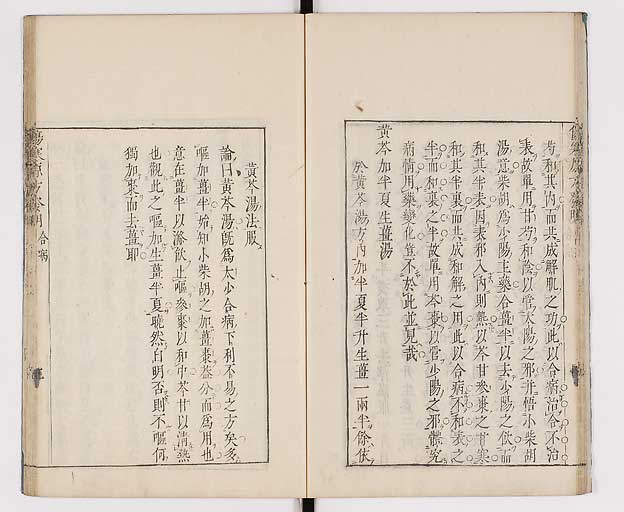 芍和其内而共成解肌之功此以合病治合不治
表故單用甘芍和陰以管太陽之邪并悟小柴胡
湯意柴胡爲少陽主藥合薑半以去少陽之飲而
和其半表因表邪入内則熱以芩甘參棗之甘寒
和其半裏而共成和解之用此以合病不和表之
半而和裏之半故單用芩棗以管少陽之邪體究
病情用藥變化豈不於此並見哉
黃芩加半夏生薑湯
於黃芩湯方内加半夏半升生薑一兩半餘依
黃芩湯法服
論曰黃芩湯既爲太少合病下利不易之方矣多
嘔加薑半始知小柴胡之加薑棗蓋分而爲用也
意在薑半以滌飲止嘔參棗以和中芩甘以清熱
也觀此之嘔加生薑半夏曉然自明否則不嘔何
獨加棗而去薑耶
合病